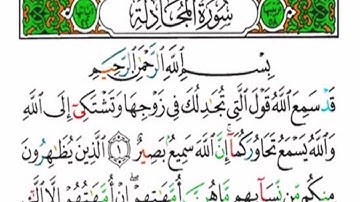 سُورَةُ الْمُجَادِلَةِ
بِسْمِ اللَّهِ الرَّحْمَٰنِ الرَّحِيمِ
قَدْ سَمِعَ اللَّهُ قَوْلَ الَّتِي تُجَٰدِلُكَ فِي زَوْجِهَا وَتَشْتَكِىٓ إِلَى اللَّهِ
وَاللَّهُ يَسْمَعُ تَحَاوُرَكُمَآ إِنَّ اللَّهَ سَمِيعٌ بَصِيرٌ ١ الَّذِينَ يُظَٰهِرُونَ
مِنكُم مِّن نِّسَآئِهِم مَّا هُنَّ أُمَّهَٰتِهِمْ إِنْ أُمَّهَٰتُهُمْ إِلَّا الَّٰٓـِٔى